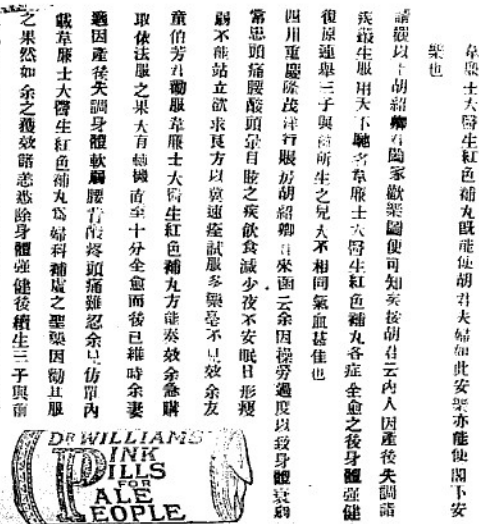 韋廉士大醫生紅色補丸既能使胡君夫婦如此安樂亦能使閣下安
樂也
請觀以上胡紹卿君闔家歡樂圖便可知矣按胡君云內人因產後失調諸
疾叢生服用天下馳名韋廉士大醫生紅色補丸各症全愈之後身體强健
復原連舉三子與前所生之兒大不相同氣血甚佳也
四川重慶隆茂洋行賬房胡紹卿君來函云余因操勞過度以致身體衰弱
常患頭痛腰酸頭暈目眩之疾飲食減少夜不安眠日形瘦
弱不能站立欲求良方以冀速痊試服多藥毫不見效余友
童伯芳君勸服韋廉士大醫生紅色補丸方能奏效余急購
取依法服之果大有轉機直至十分全愈而後已維時余妻
適因產後失調身體軟弱腰背酸疼頭痛難忍余見仿單內
載韋廉士大醫生紅色補丸爲婦科補虛之聖藥因勸其服
之果然如余之獲效諸恙悉除身體强健後續生三子與前
DR WILLIAMS
PINK
PILLS
FOR
PALE
PEOPLE